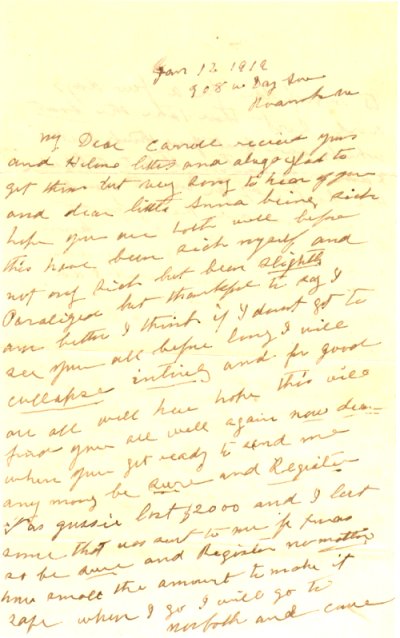 Jan 12 1919
908 w Day Ave
Roanoke Va
My Dear Carroll recieved yours
and Helens letter and always glad to
get them but very sorry to hear of you
and dear little Anna being sick
hope you are both well before
this have been sick myself and
not only sick but been slightly
Paralized but thankful to day I
am better I think if I dont get to
see you all before long I will
collapse intirely and for good
are all well here hope this will
find you all well again now dear
when you get ready to send me
any mony be sure and Register
it as gussie lost $2000 and I lost
some that was sent to me for Xmas
so be sure and Register no matter
how small the amount to make it
safe when I go I will go to
Norfolk and come